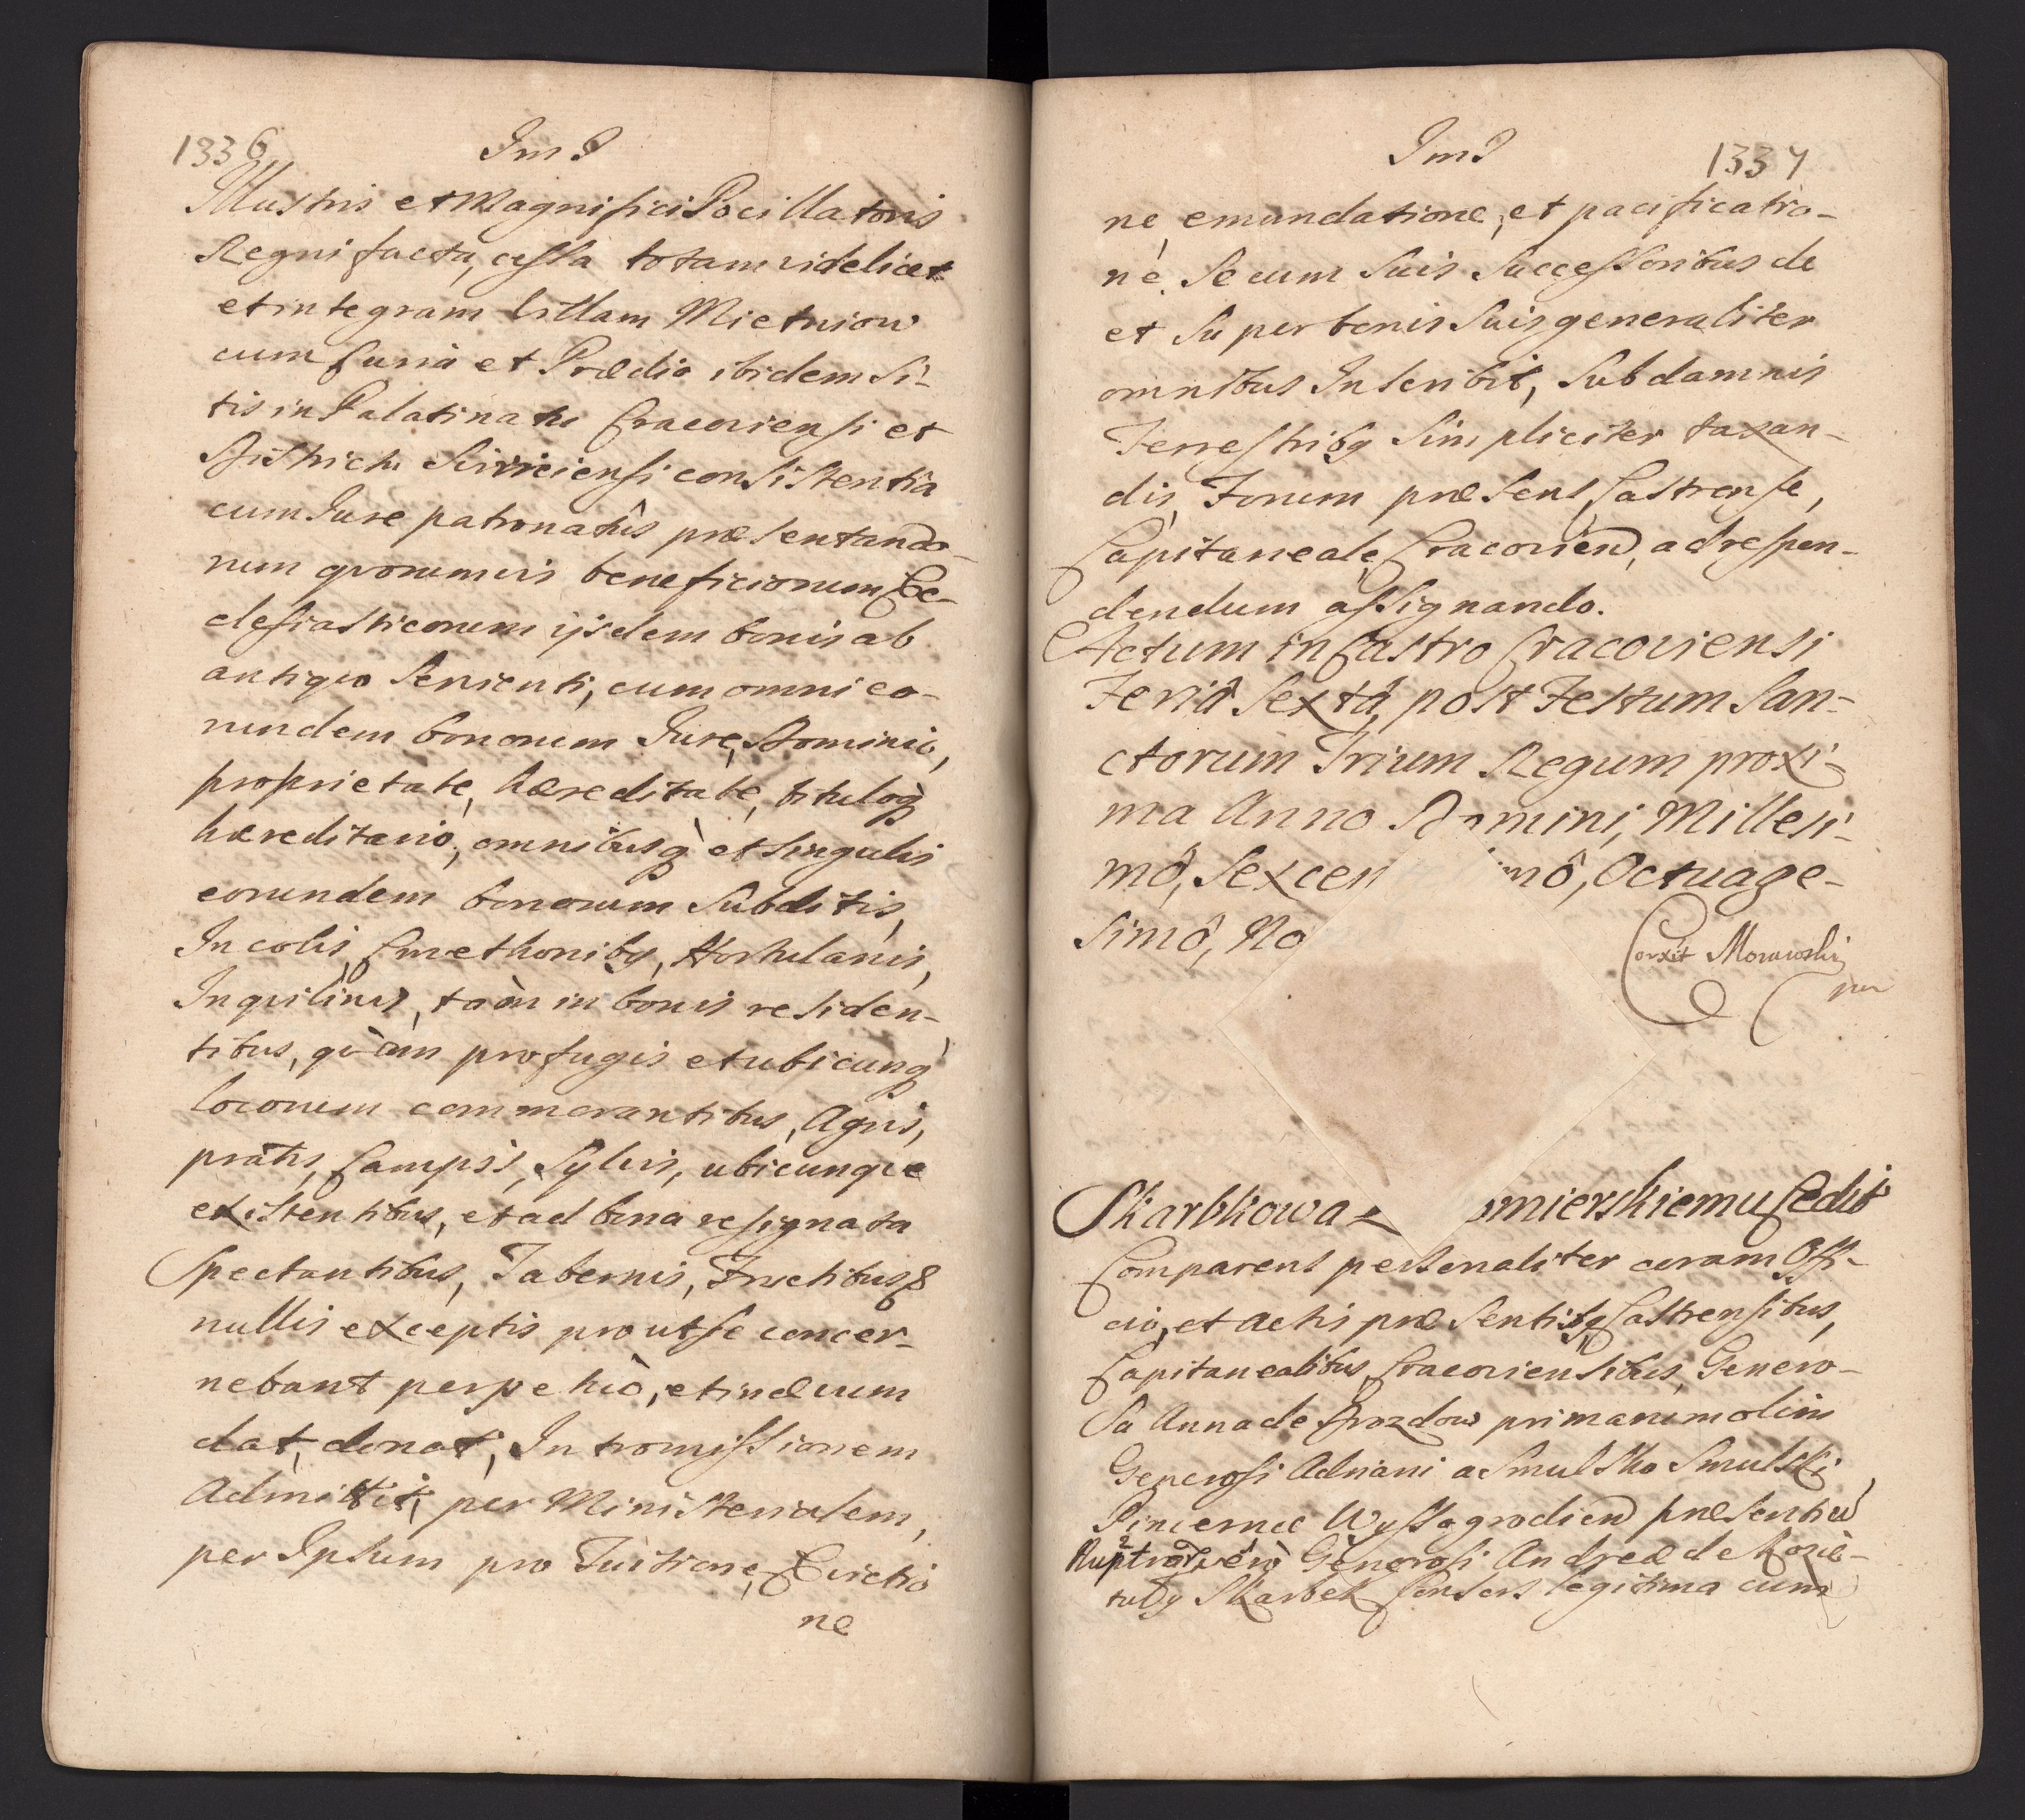 1336
Im J
Illustris et Magnifici Pocillatoris
Regni facta, cessa totam videlicet
et integram Villam Mietniow
cum Curia et Prædio ibidem si-
tis in Palatinatu Cracoviensi et
Districtu Scirieiensi consistentia
cum Iure patronatûs præsentando-
rum quorumvis beneficiorum Ec-
clesiasticorum ijsdem bonis ab
antiquo servienti, cum omni eo-
rundem bonorum Iure, Dominio,
proprietate, hæreditate, tituloq
hæreditario, omnibusq et singulis
eorundem bonorum Subditis,
Incolis, Cmethonibq, Hortulanis,
Inquilinis, tam in bonis residen-
tibus, quàm profugis et ubicunq
locorum commorantibus, Agris,
pratis, Campis, Sylvis, ubicunque
existentibus, et ad bona resignata
Spectantibus, Tabernis, Fructibusq
nullis exceptis prout se concer-
nebant perpetuò, et in ævum
dat, donat, Intromissionem
Admittit, per Ministerialem,
per Ipsum pro Tuitione, Evictio
ne
Im J
1337
ne, emundatione, et pacificatio-
ne. Se cum Suis Successoribus de
et super bonis Suis generaliter
omnibus Inscribit, Sub damnis
Terrestribq Simpliciter taxan-
dis, Forum præsens Castrense,
Capitaneale, Cracovien, ad respon-
dendum assignando.
Actum in Castro Cracoviensi
Feriâ Sextâ, post Festum San-
ctorum Trium Regum proxi-
ma Anno Domini, Millesi-
mô, Sexcen mô, Octuage-
simô, No
Corxit Morawski
mp
Skarbkowa mierskiemu Cedit
Comparens personaliter coram Offi-
cio, et Actis præsentibq Castrensibus,
Capitanealibus, Cracoviensibus, Genero-
sa Anna de Drozdow primarum olim
Generosi Adriani a Smulsko Smulski
Pincernæ Wyssogrodien præsentiu
Nuptiar vero Generosi Andreæ de
tulÿ Skarbek Consors legitima cum